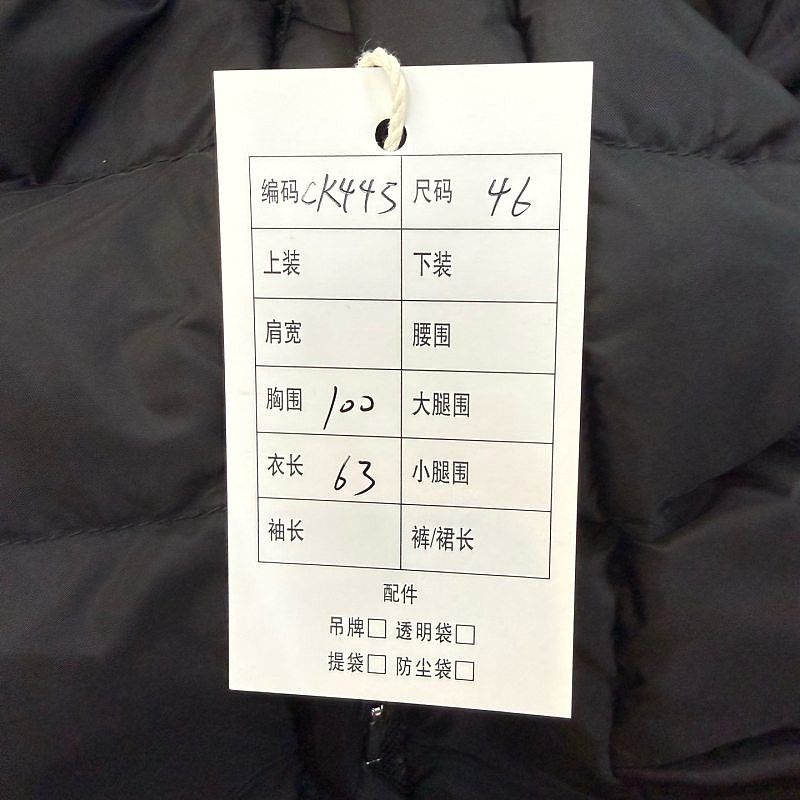 编码 CK445 尺码 46
上装 下装
肩宽 腰围
胸围 100 大腿围
衣长 63 小腿围
袖长 裤/裙长
配件
吊牌□ 透明袋□
提袋□ 防尘袋□